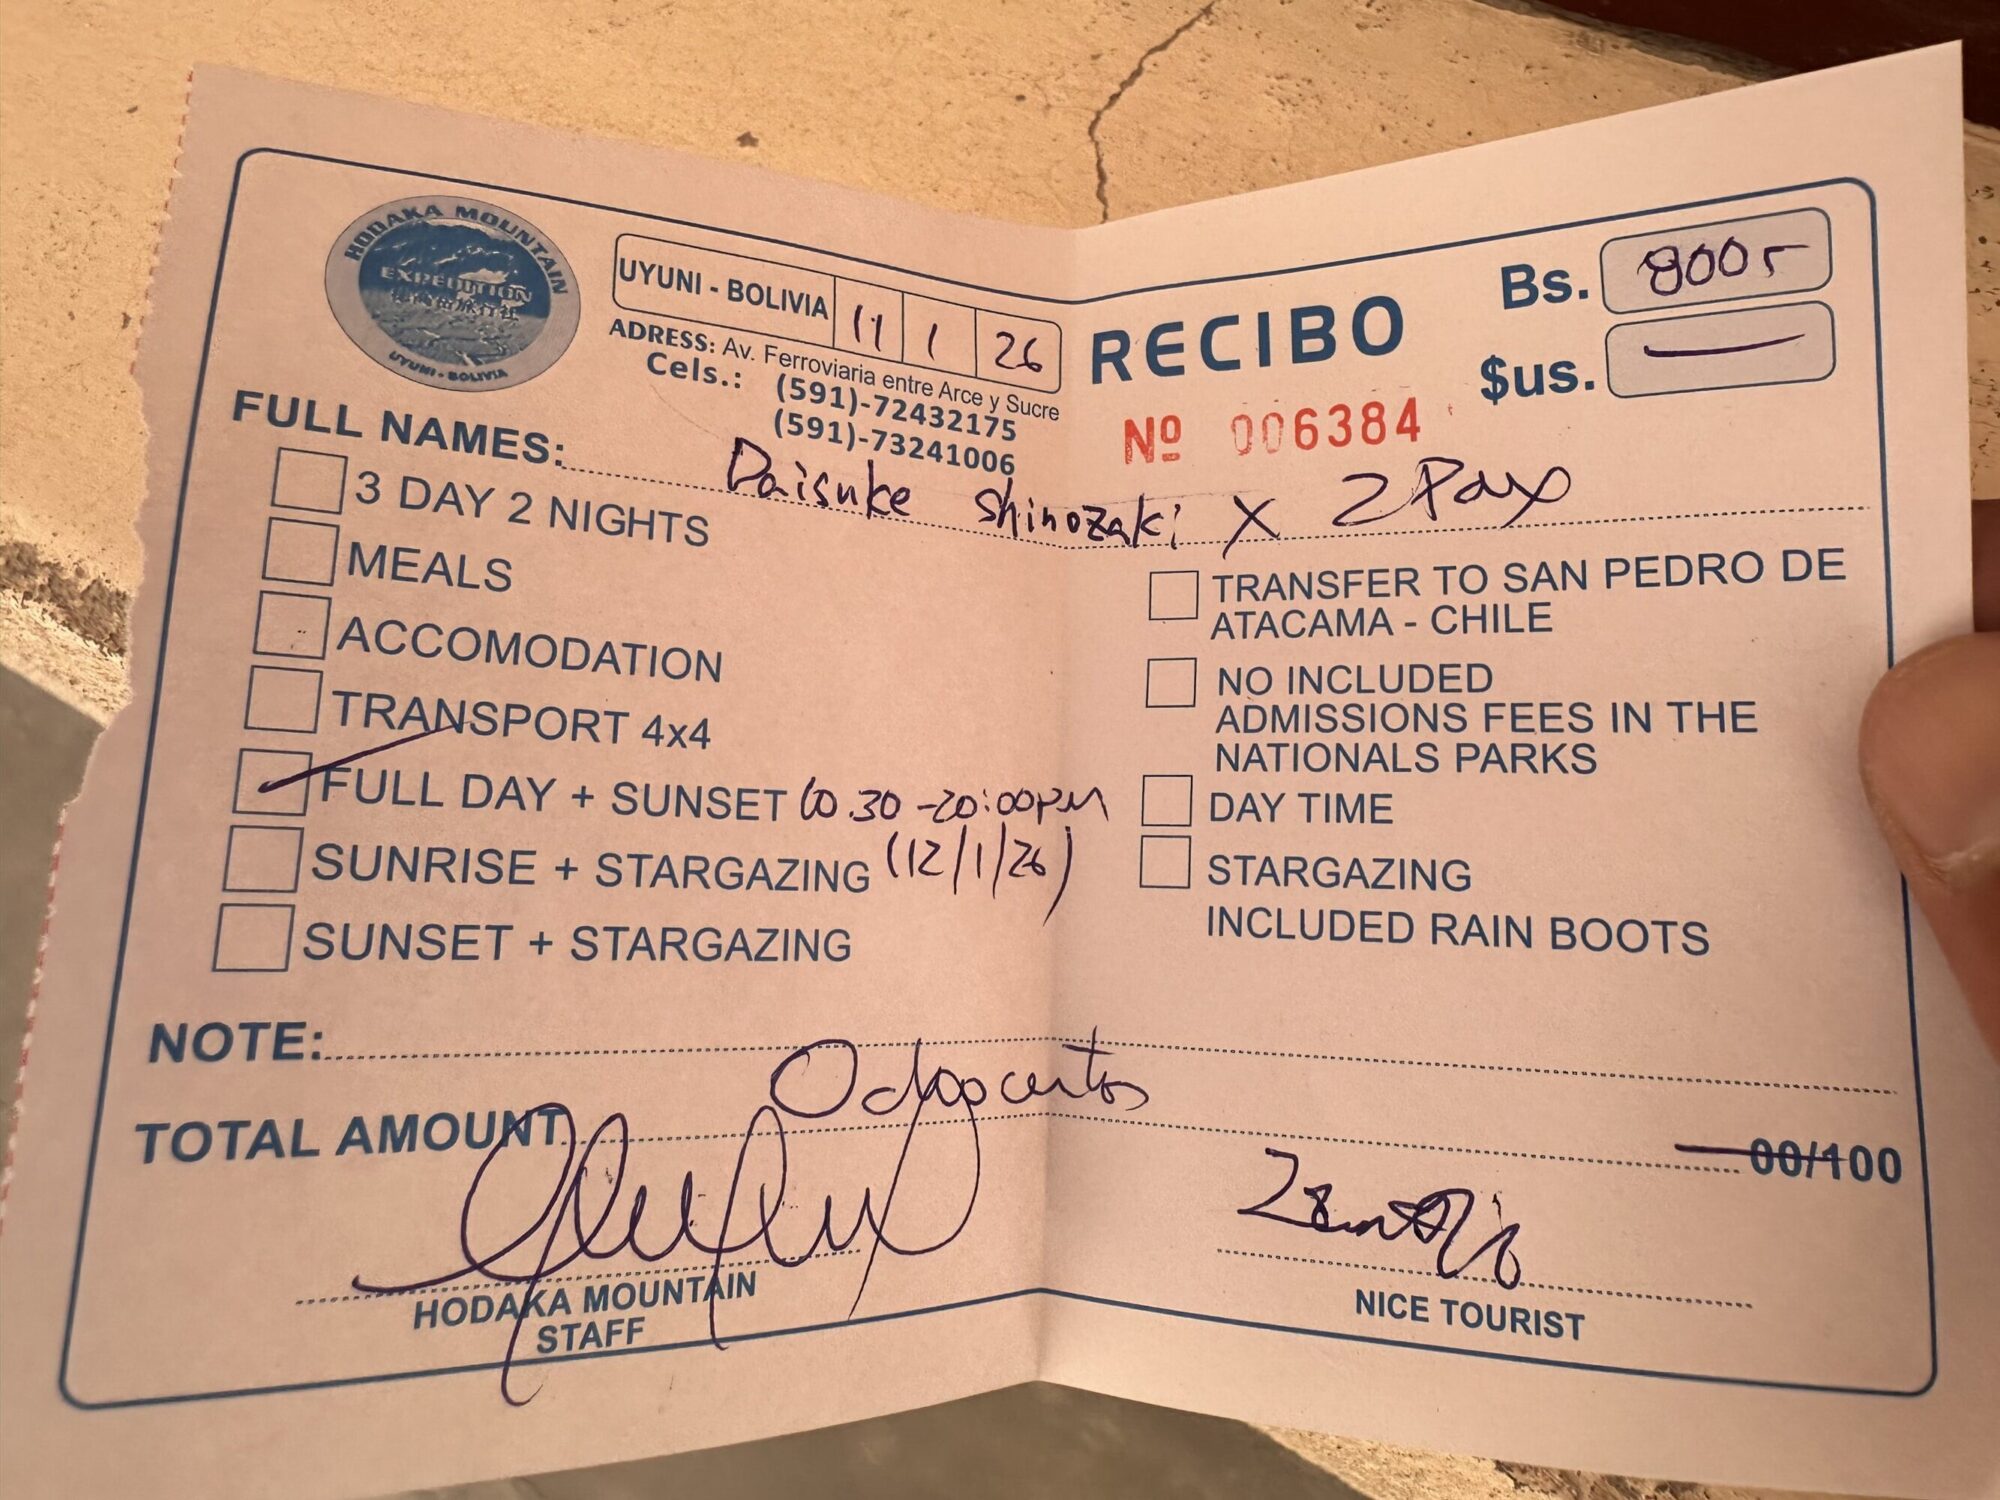 HODAKA MOUNTAIN
EXPEDITION
UYUNI - BOLIVIA
UYUNI - BOLIVIA 11 1 26
ADRESS: Av. Ferroviaria entre Arce y Sucre
Cels.: (591)-72432175
(591)-73241006
RECIBO
Nº 006384
Bs. 800
$us. —
FULL NAMES: Daisuke Shinozaki x 2 Pax
3 DAY 2 NIGHTS
MEALS
ACCOMODATION
TRANSPORT 4x4
FULL DAY + SUNSET 10.30 - 20:00PM
SUNRISE + STARGAZING (12/1/26)
SUNSET + STARGAZING
TRANSFER TO SAN PEDRO DE
ATACAMA - CHILE
NO INCLUDED
ADMISSIONS FEES IN THE
NATIONALS PARKS
DAY TIME
STARGAZING
INCLUDED RAIN BOOTS
NOTE:
TOTAL AMOUNT Ochocientos 00/100
HODAKA MOUNTAIN
STAFF
NICE TOURIST